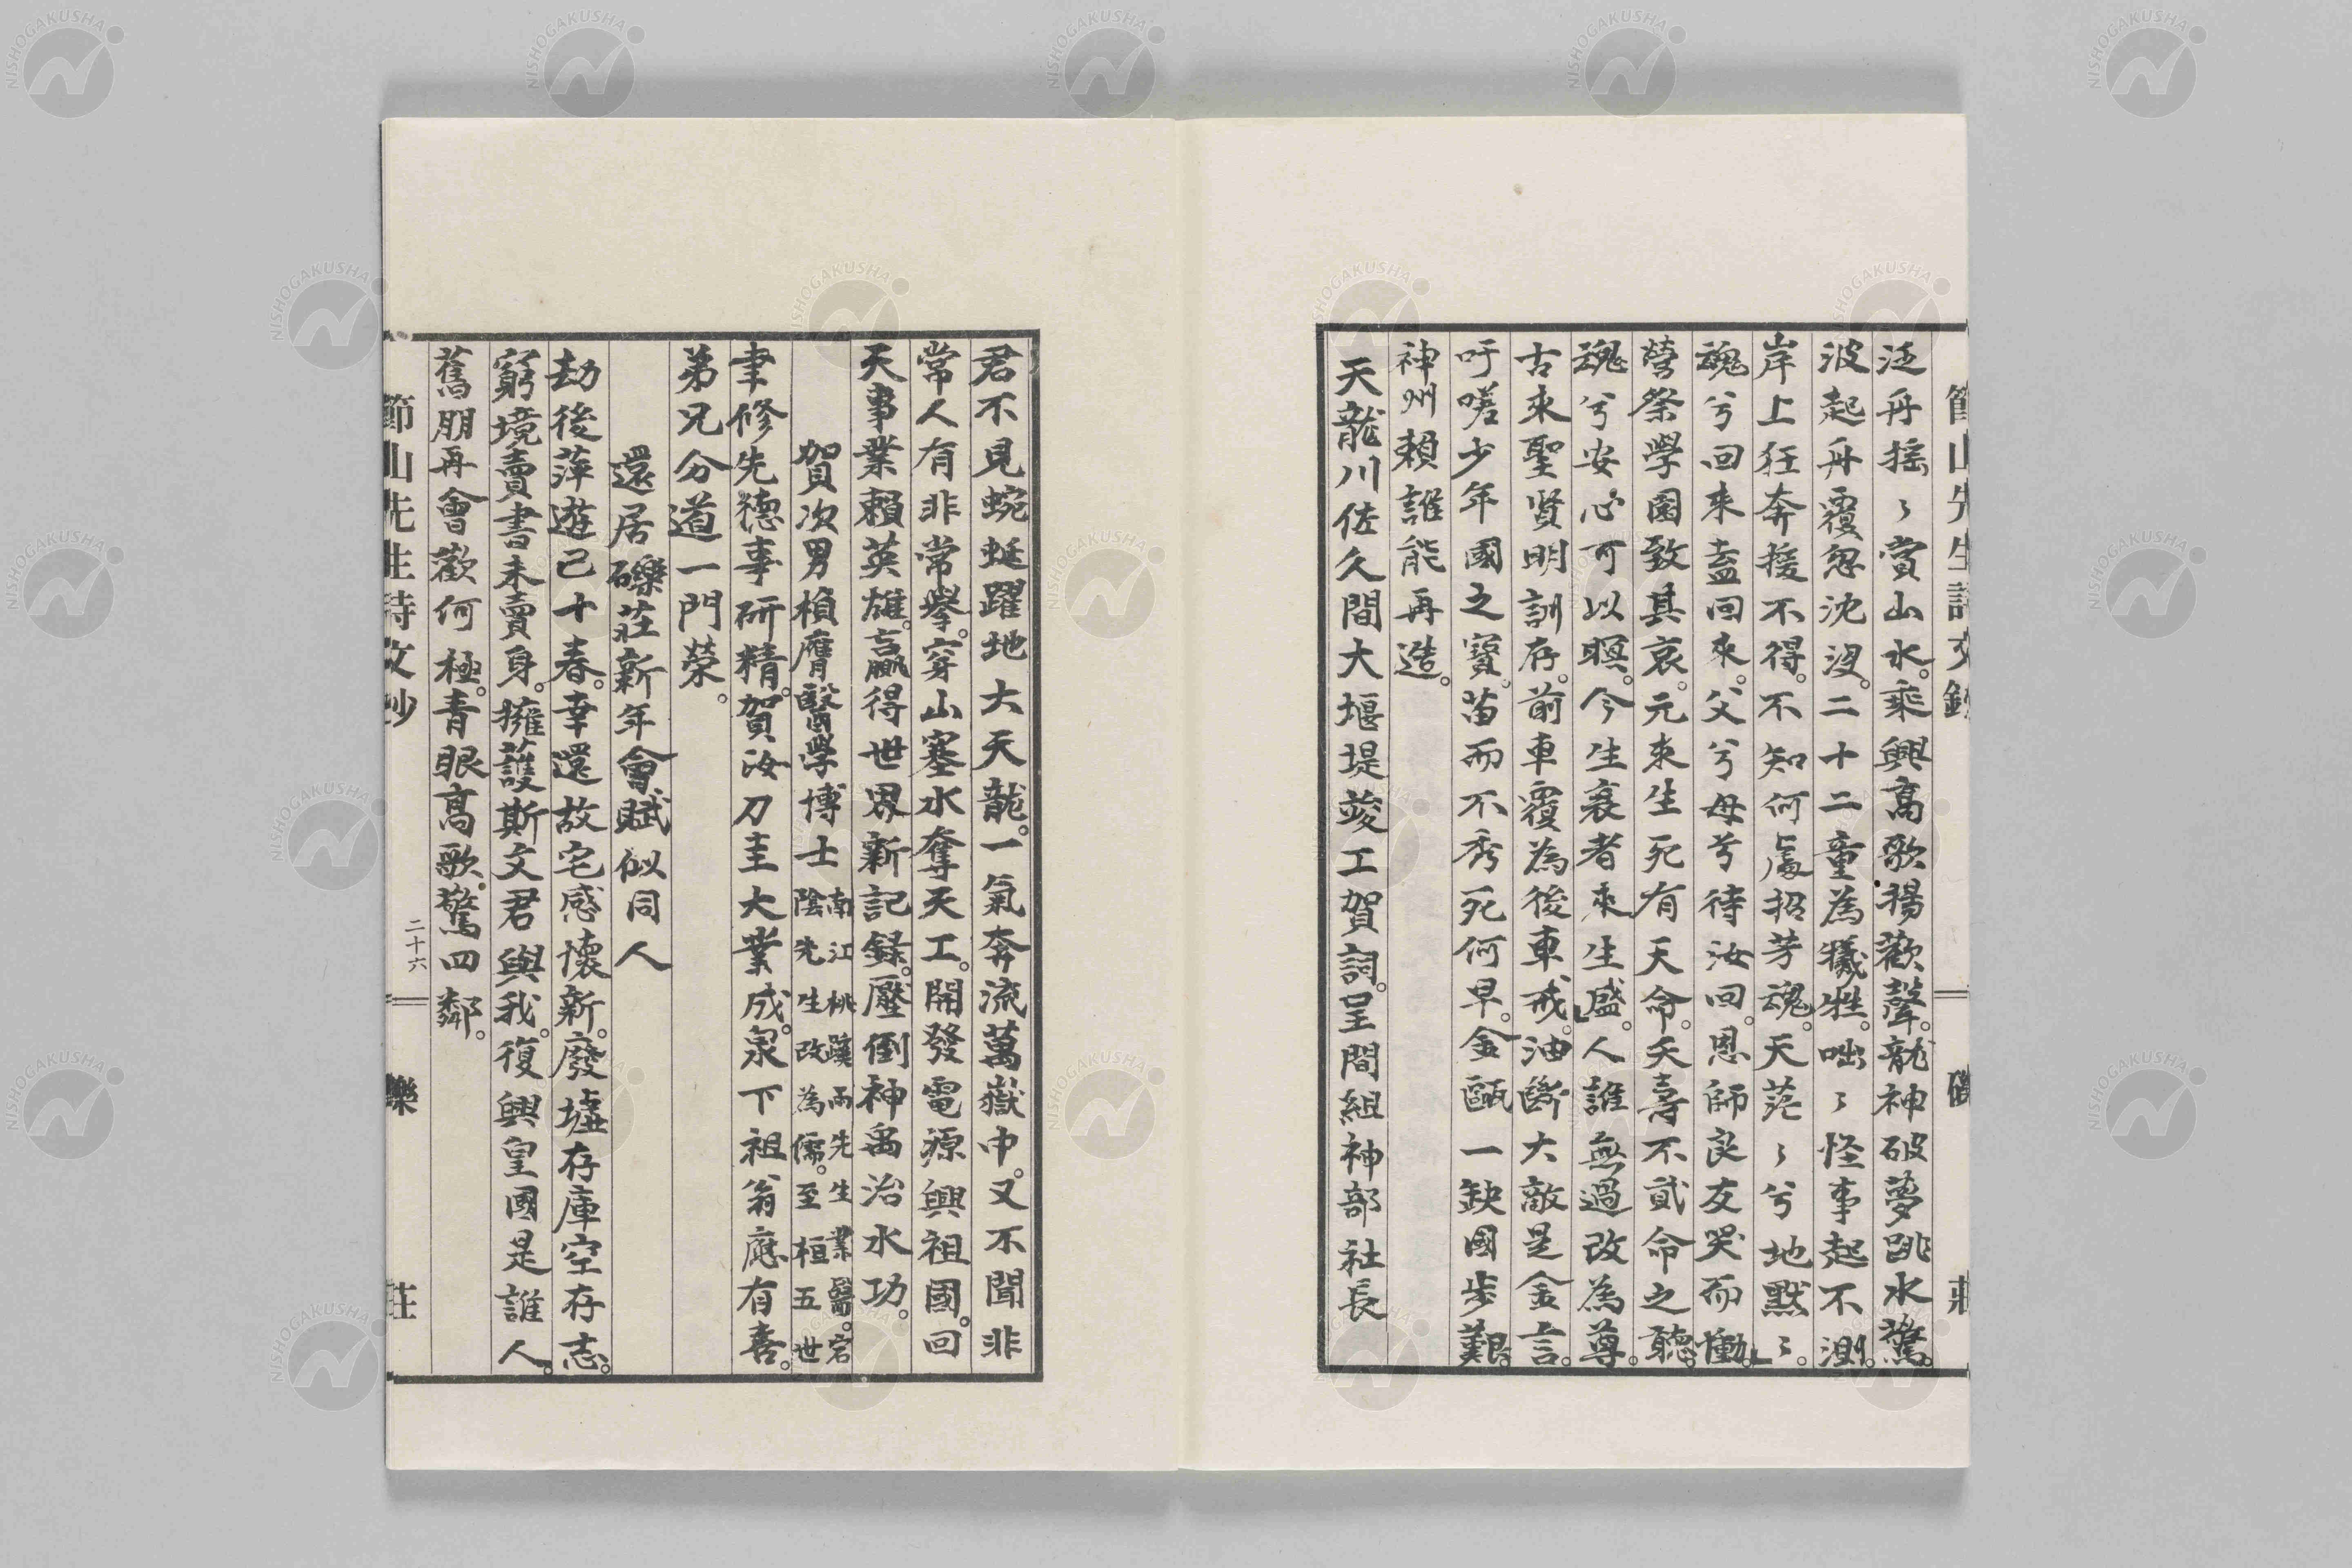 節山先生詩文鈔 礫莊
泛舟搖々賞山水。乘興高歌揚歡聲。龍神破夢跳水驚。
波起舟覆忽沈沒。二十二童為犧牲。咄々怪事起不測。
岸上狂奔援不得。不知何處招芳魂。天茫々兮地默々。
魂兮回來盍回來。父兮母兮待汝回。恩師良友哭而慟。
營祭學園致其哀。元來生死有天命。夭壽不貳命之聽。
魂兮安心可以瞑。今生衰者來生盛。人誰無過改為尊。
古來聖賢明訓存。前車覆為後車戒。油斷大敵是金言。
吁嗟少年國之寶。苗而不秀死何早。金甌一缺國步艱。
神州賴誰能再造。
天龍川佐久間大堰堤竣工賀詞。呈間組神部社長
君不見蜿蜒躍地大天龍。一氣奔流萬嶽中。又不聞非
常人有非常擧。穿山塞水奪天工。開發電源興祖國。回
天事業賴英雄。贏得世界新記錄。壓倒神禹治水功。
賀次男楨膺醫學博士 南江桃蹊兩先生業醫。宕陰先生改為儒。至桓五世
聿修先德事研精。賀汝刀圭大業成。泉下祖翁應有喜。
弟兄分道一門榮。
還居礫莊新年會賦似同人
劫後萍遊已十春。幸還故宅感懷新。廢墟存庫空存志。
窮境賣書未賣身。擁護斯文君與我。復興皇國是誰人。
舊朋再會歡何極。青眼高歌驚四鄰。
節山先生詩文鈔 二十六 礫莊
NISHOGAKUSHA